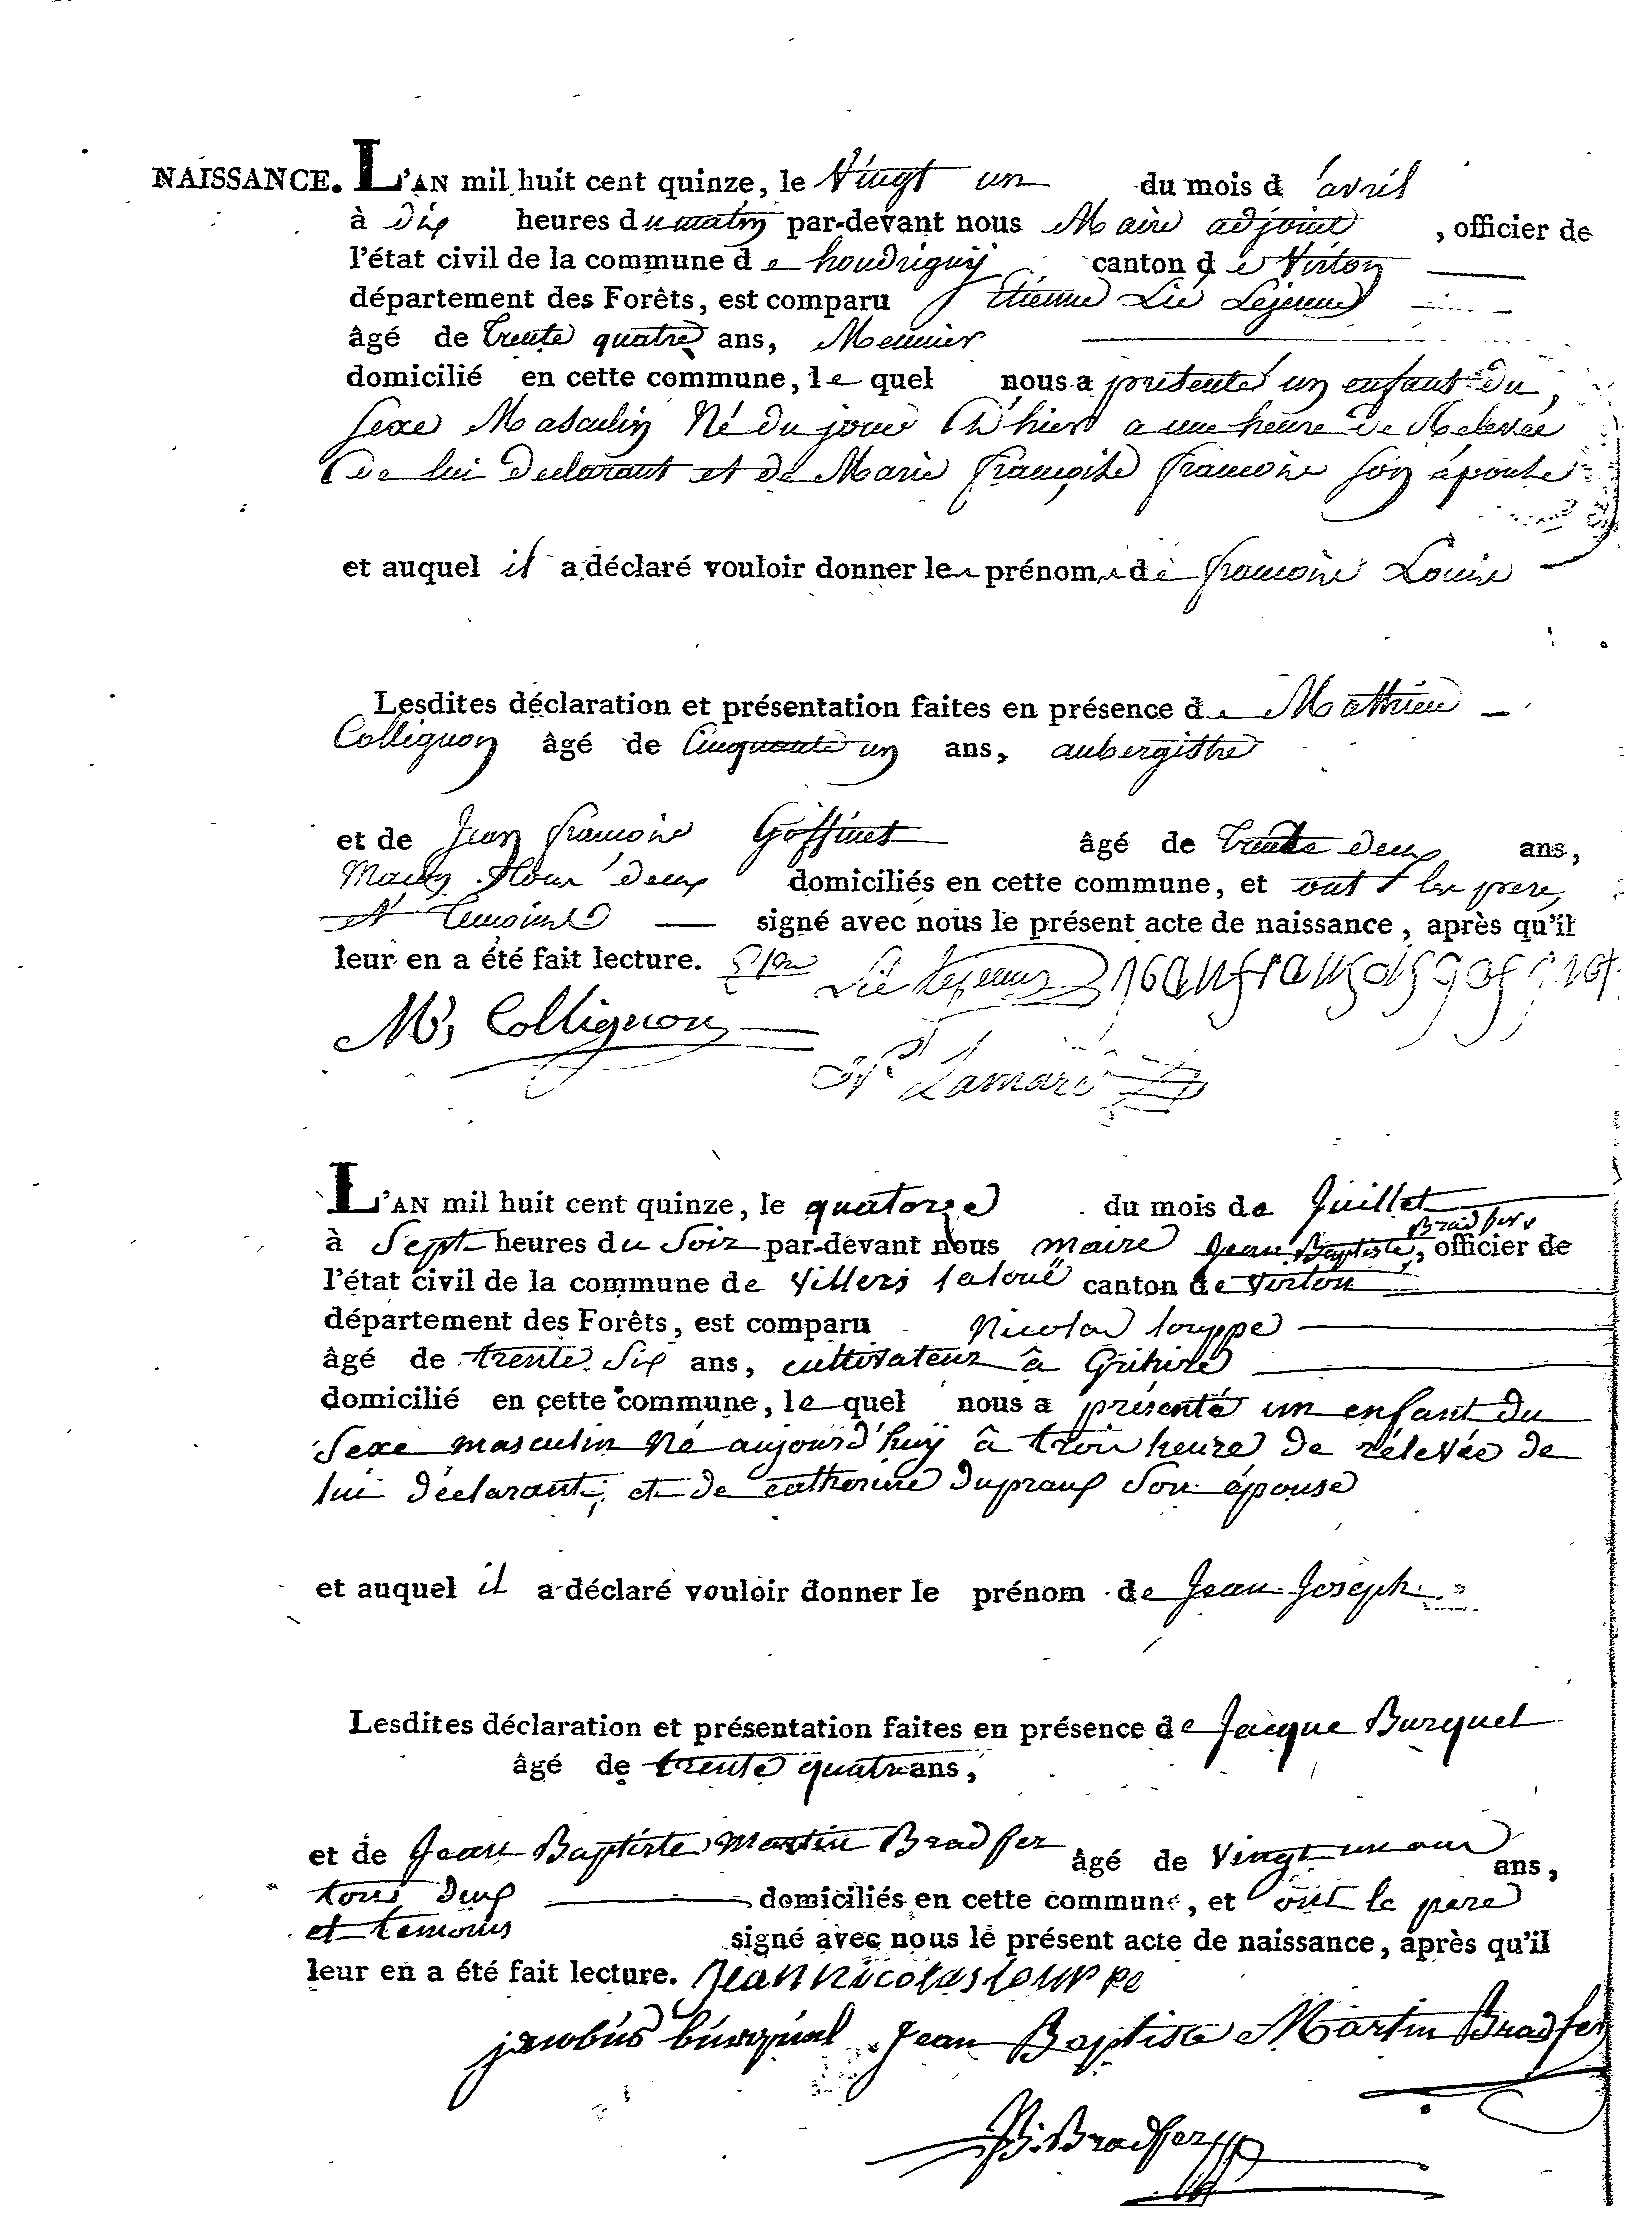 NAISSANCE. L'AN mil huit cent quinze, le Vingt un du mois d avril
à dix heures du matin par-devant nous Maire adjoint, officier de
l'état civil de la commune de houdrigny canton de Virton
département des Forêts, est comparu Etienne Lié Lejeune
âgé de trente quatre ans, Meunier
domicilié en cette commune, le quel nous a présenté un enfant du
sexe Masculin Né du jour d'hier a une heure de Relevée
de lui declarant et de Marie françoise francoise son épouse
et auquel il a déclaré vouloir donner les prénoms de francois Louis
Lesdites déclaration et présentation faites en présence de Mathieu
Collignon âgé de Cinquante un ans, aubergiste
et de Jean francois Goffinet âgé de trente deux ans,
domiciliés en cette commune, et ont les pere
et temoins signé avec nous le présent acte de naissance, après qu'il
leur en a été fait lecture. Lié Lejeune jean françois goffinet
M, Collignon
Lamare
L'AN mil huit cent quinze, le quatorze du mois de Juillet
Bradfer
à Sept heures du Soir par-devant nous maire Jean Baptiste, officier de
l'état civil de la commune de Villers laloue canton de Virton
département des Forêts, est comparu Nicolas louppe
âgé de trente six ans, cultivateur à
domicilié en cette commune, le quel nous a présenté un enfant du
Sexe masculin Né aujourd'huy â trois heure de rélevée de
lui déclarant, et de catherine dupraux son épouse
et auquel il a déclaré vouloir donner le prénom de Jean Joseph
Lesdites déclaration et présentation faites en présence de Jacque Burquel
âgé de trente quatre ans,
et de Jean Baptiste Martin Bradfer âgé de Vingt un ans ans,
tous deux domiciliés en cette commune, et ont le pere
et temoins signé avec nous le présent acte de naissance, après qu'il
leur en a été fait lecture. Jean nicolas louppe
jacobus burquel Jean Baptiste Martin Bradfer
Bradfer